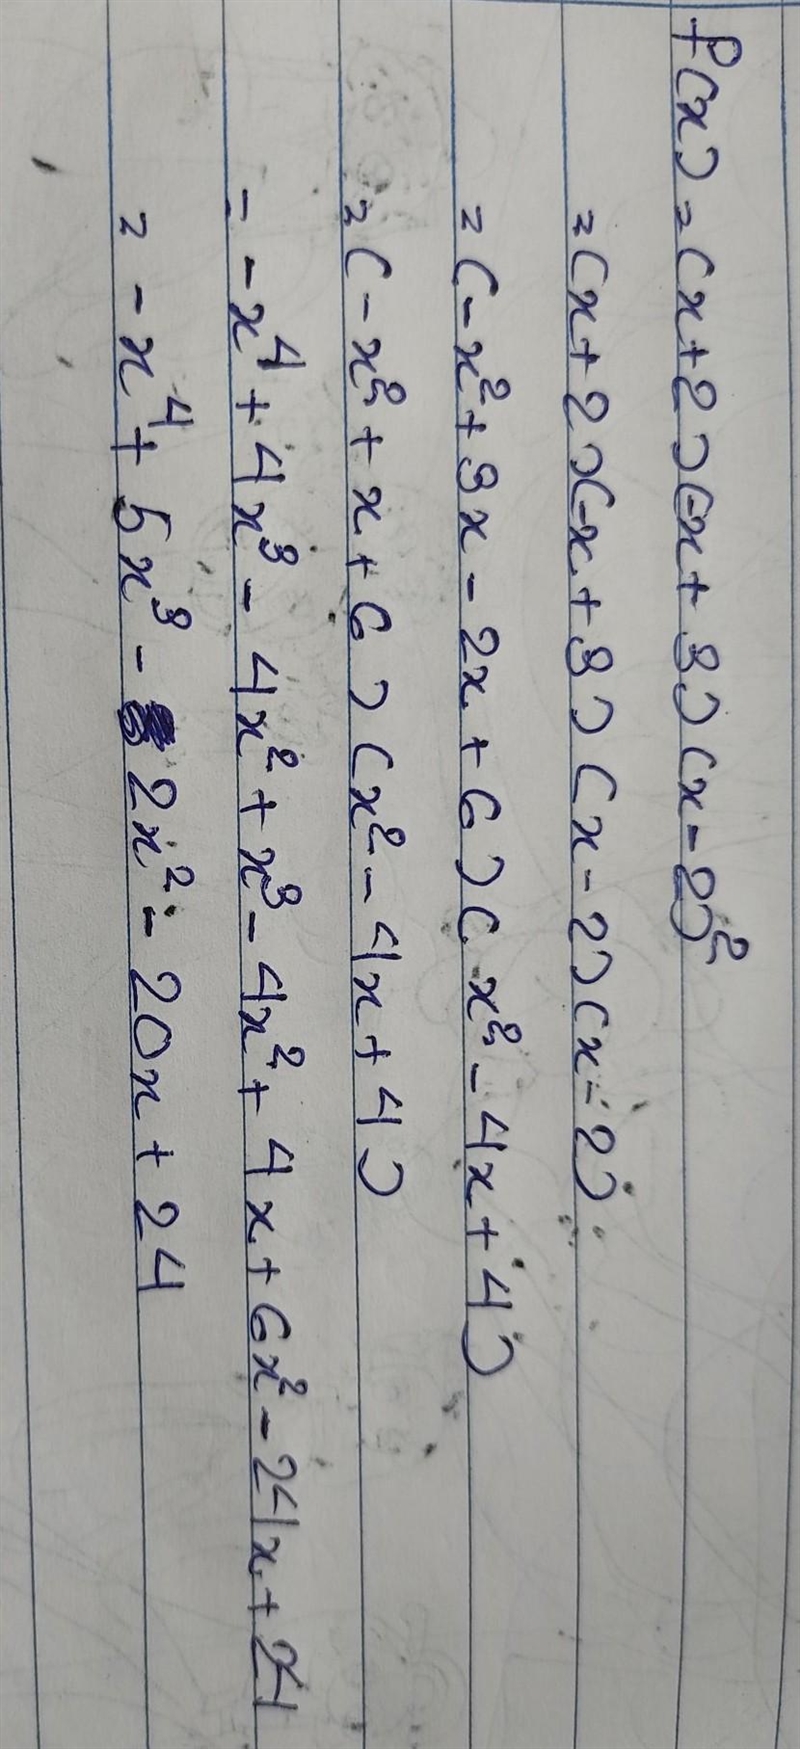 f(x) = (x+2)(-x+3)(x-2)²
= (x+2)(-x+3)(x-2)(x-2)
= (-x²+3x-2x+6)(x²-4x+4)
= (-x²+x+6)(x²-4x+4)
= -x⁴+4x³-4x²+x³-4x²+4x+6x²-24x+24
= -x⁴+5x³-2x²-20x+24